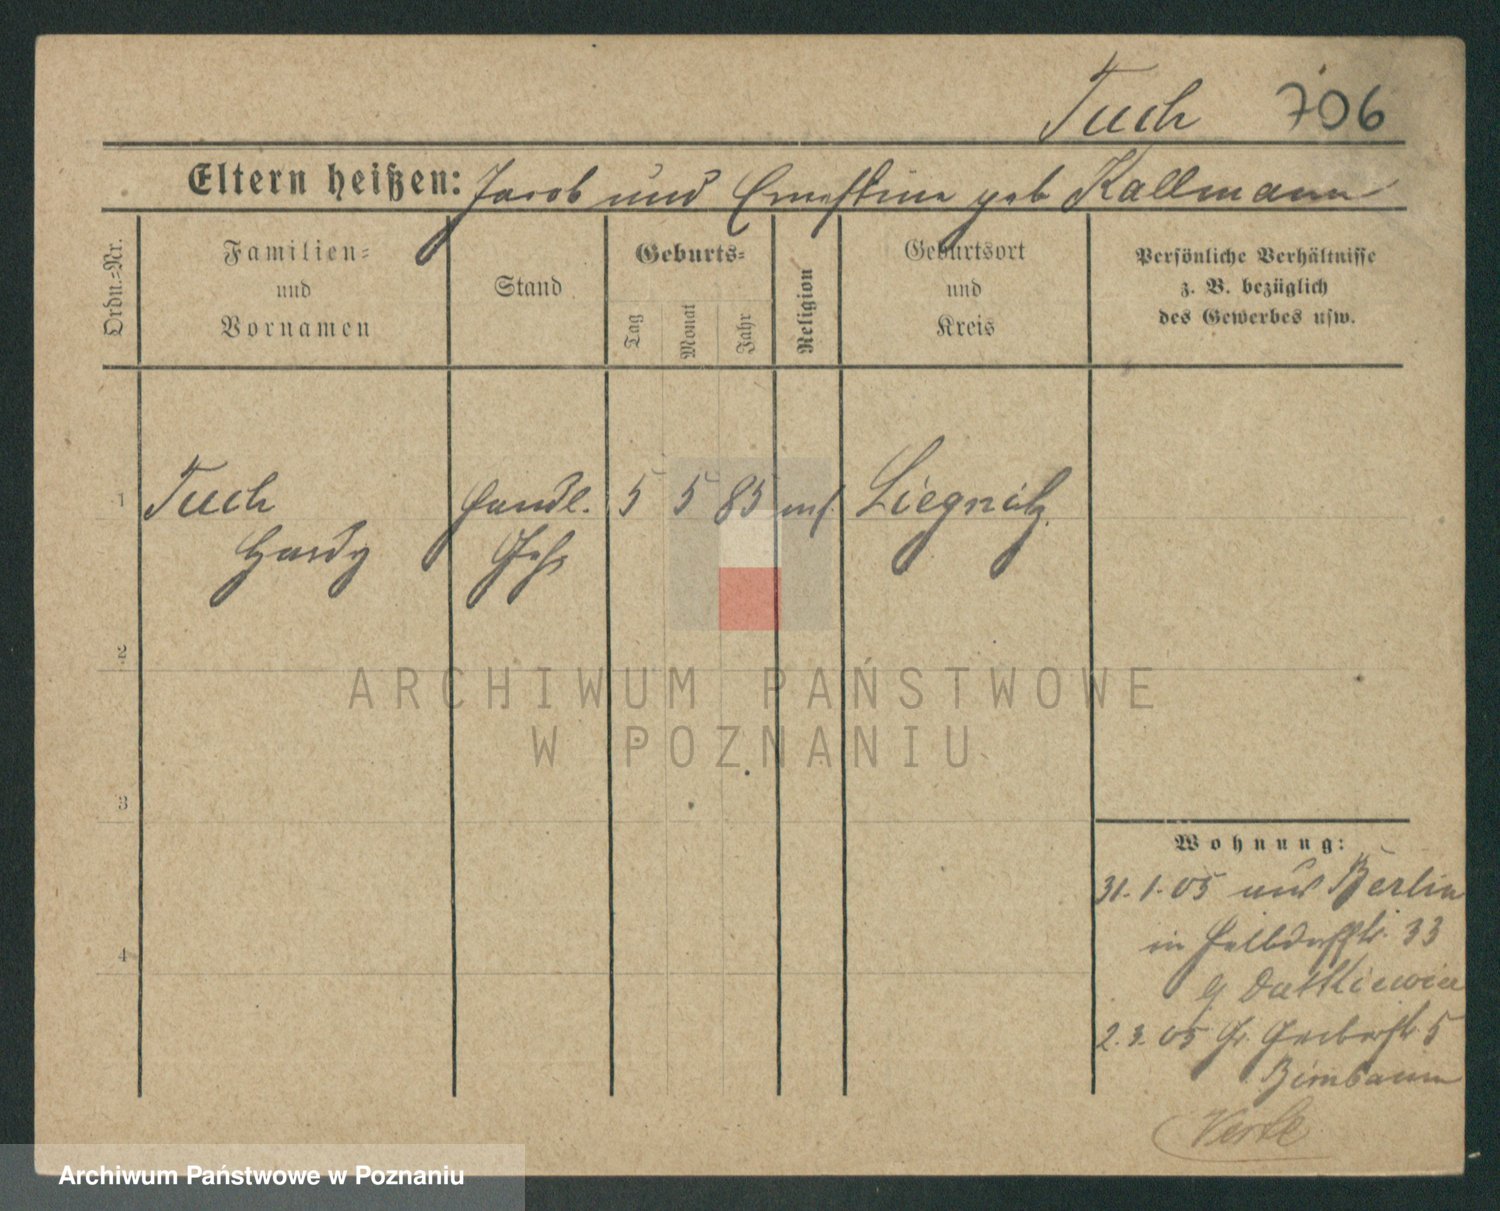 Tuch 706
Eltern heißen: Jacob und Ernestine geb Kallmann
Ordn.=Nr.
Familien=
und
Vornamen
Stand
Geburts=
Tag
Monat
Jahr
Religion
Geburtsort
und
Kreis
Persönliche Verhältnisse
z. B. bezüglich
des Gewerbes usw.
1 Tuch Handl. 5 5 85 mos. Liegnitz
Gehs
2
3
4
Wohnung:
31.1.05 aus Berlin
in 33
2.3.05 Gr. Gerberstr 5
Birnbaum
ARCHIWUM PAŃSTWOWE
W POZNANIU
Archiwum Państwowe w Poznaniu